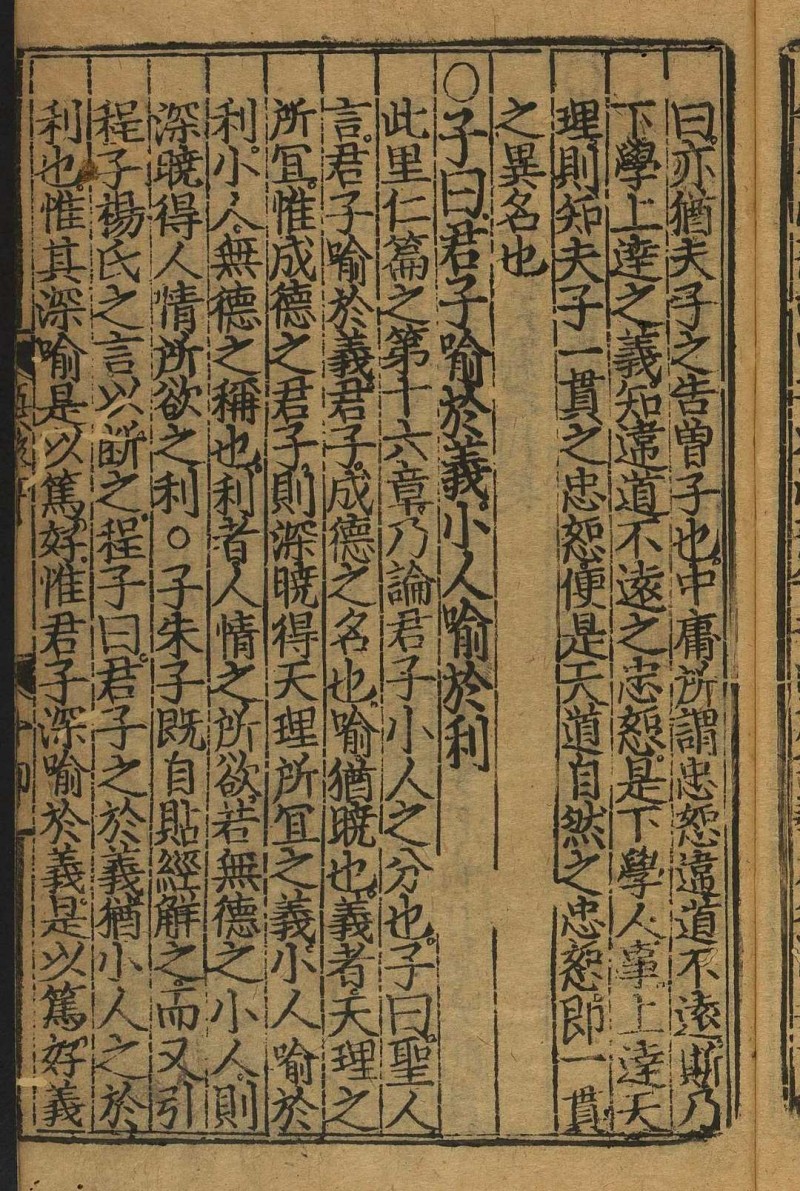 曰亦猶夫子之告曽子也中庸所謂忠恕違道不逺斯乃
下學上逹之義知違道不逺之忠恕是下學人事上逹天
理則知夫子一貫之忠恕便是天道自然之忠恕即一貫
之異名也
○子曰君子喻於義小人喻於利
此里仁篇之第十六章乃論君子小人之分也子曰聖人
言君子喻於義君子成德之名也喻猶暁也義者天理之
所冝惟成德之君子則深暁得天理所冝之義小人喻於
利小人無德之稱也利者人情之所欲若無德之小人則
深暁得人情所欲之利○子朱子既自貼經解之而又引
程子楊氏之言以断之程子曰君子之於義猶小人之於
利也惟其深喻是以篤好惟君子深喻於義是以篤好義